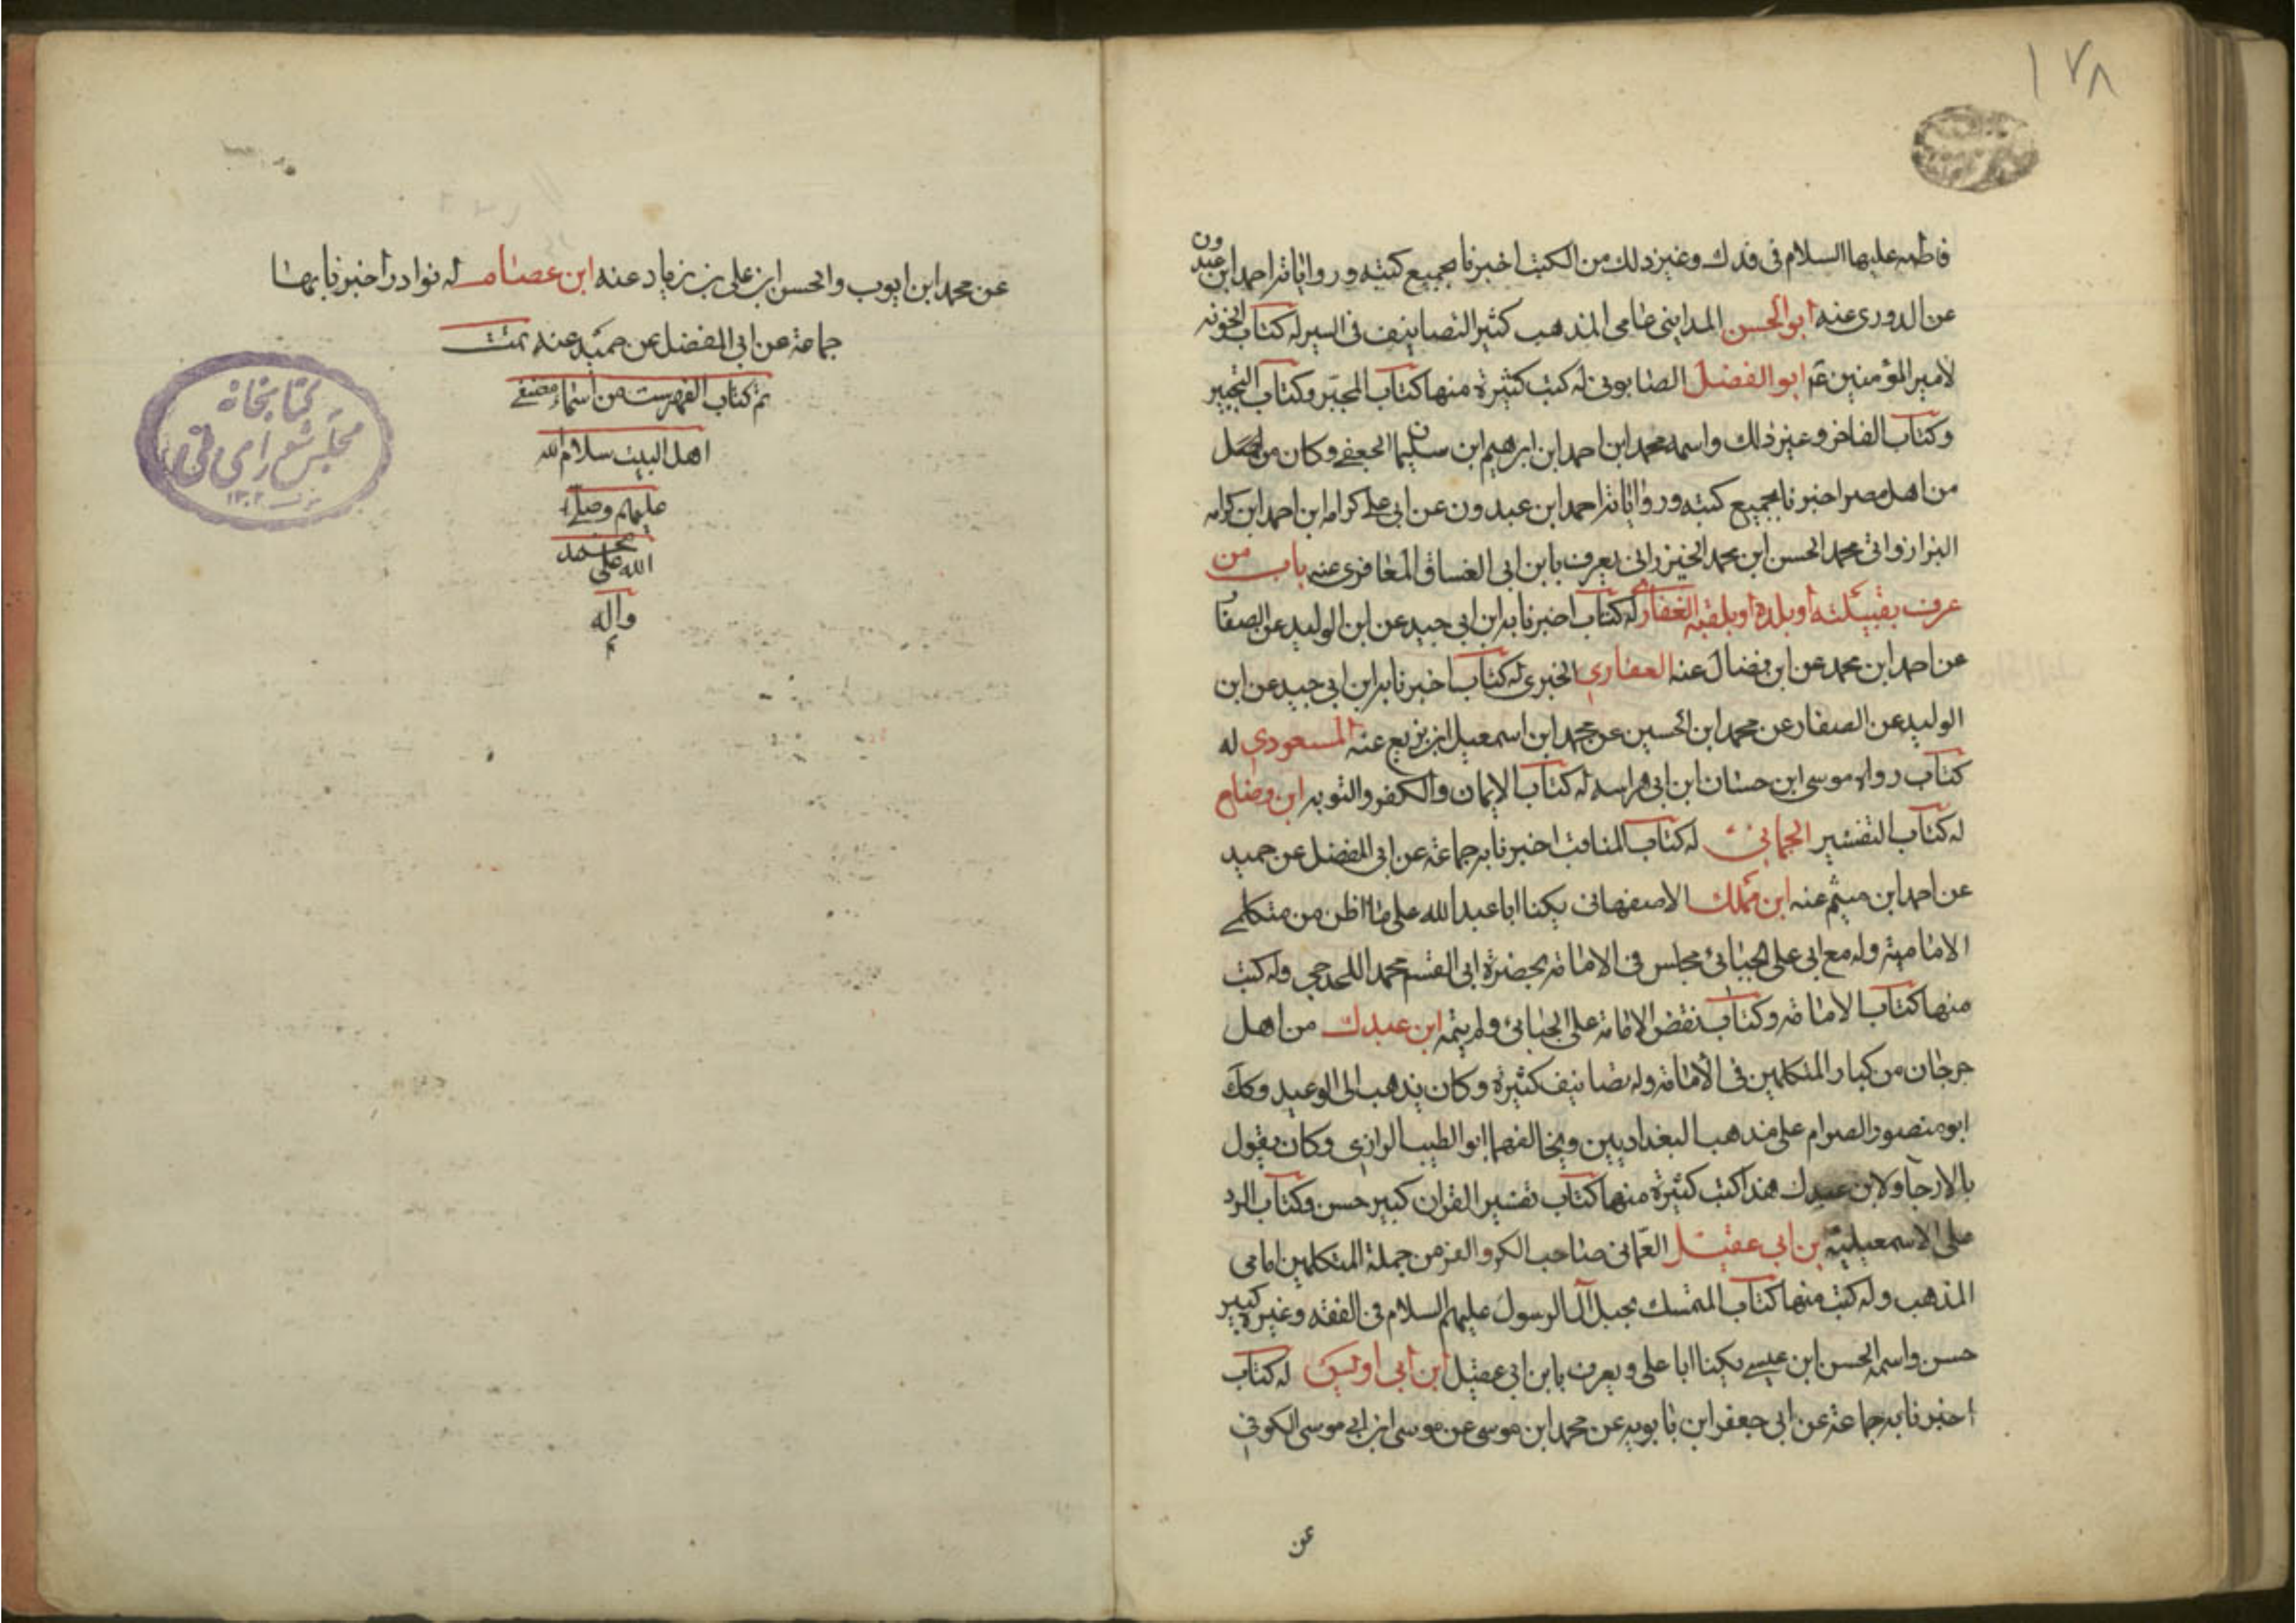 ١٧٨
فاطمه عليها السلام فى فدك وغير ذلك من الكتب اخبرنا بجميع كتبه ورواياته احمد ابن عبدون
عن الدورى عنه ابو الحسن المداينى عامى المذهب كثير التصانيف فى السير له كتاب الخونه
لامير المؤمنين ع ابو الفضل الصابونى له كتب كثيرة منها كتاب المحبّر وكتاب التحبير
وكتاب الفاخر وغير ذلك واسمه محمد ابن احمد ابن ابرهيم ابن سليمان الجعفى وكان من
من اهل مصر اخبرنا بجميع كتبه ورواياته احمد ابن عبدون عن ابى على كرامه ابن احمد ابن كرامه
البزاز وابى محمد الحسن ابن محمد الخيزرانى يعرف بابن ابى الغساق المغافرى عنه باب من
عرف بقبيلته أو بلده أو بلقبه الغفارى له كتاب اخبرنا به ابن ابى جيد عن ابن الوليد عن الصفار
عن احمد ابن محمد عن ابن فضال عنه العفارى الخبرى له كتاب اخبرنا به ابن ابى جيد عن ابن
الوليد عن الصفار عن محمد ابن الحسين عن محمد ابن اسمعيل ابن بزيع عنه المسعودى له
كتاب رواه موسى ابن حسان ابن ابى هراسه له كتاب الايمان والكفر والتوبه ابن وضاح
له كتاب التفسير الحمانى له كتاب المناقب اخبرنا به جماعة عن ابى المفضل عن حميد
عن احمد ابن ميثم عنه ابن مملك الاصفهانى يكنا ابا عبد الله على ما اظن من متكلمى
الامامية وله مع ابى على الجبائى مجلس فى الامامة بحضرة ابى القسم محمد وله كتب
منها كتاب الامامة وكتاب نقض الامامة على الجبائى ولم يتمه ابن عبدك من اهل
جرجان من كبار المتكلمين فى الأمامة وله تصانيف كثيرة وكان يذهب الى الوعيد وكان
ابو منصور الصرام على مذهب البغداديين ويخالفهما ابو الطيب الرازى وكان يقول
بالارجا ولابن عبدك هذا كتب كثيرة منها كتاب تفسير القران كبير حسن وكتاب الرد
على الاسمعيلية بن ابى عقيل العمّانى صاحب الكر والفر من جملة المتكلمين امامى
المذهب وله كتب منها كتاب المتمسك بحبل آل الرسول عليهم السلام فى الفقه وغيره كبير
حسن واسمه الحسن ابن عيسى يكنا ابا على ويعرف بابن ابى عقيل ابن ابى اويس له كتاب
اخبرنا به جماعة عن ابى جعفر ابن بابويه عن محمد ابن موسى عن موسى ابن ابى موسى الكوفى
عن
عن محمد ابن ايوب والحسن ابن على بن زياد عنه ابن عصام له نوادر اخبرنا بها
جماعة عن ابى المفضل عن حميد عنه تمت
تم كتاب الفهرست من اسماء مصنفى
اهل البيت سلام الله
عليهم وصلى
الله على محمد
واله
م
كتابخانهٔ
مجلس شورای ملی
١٣٠٢